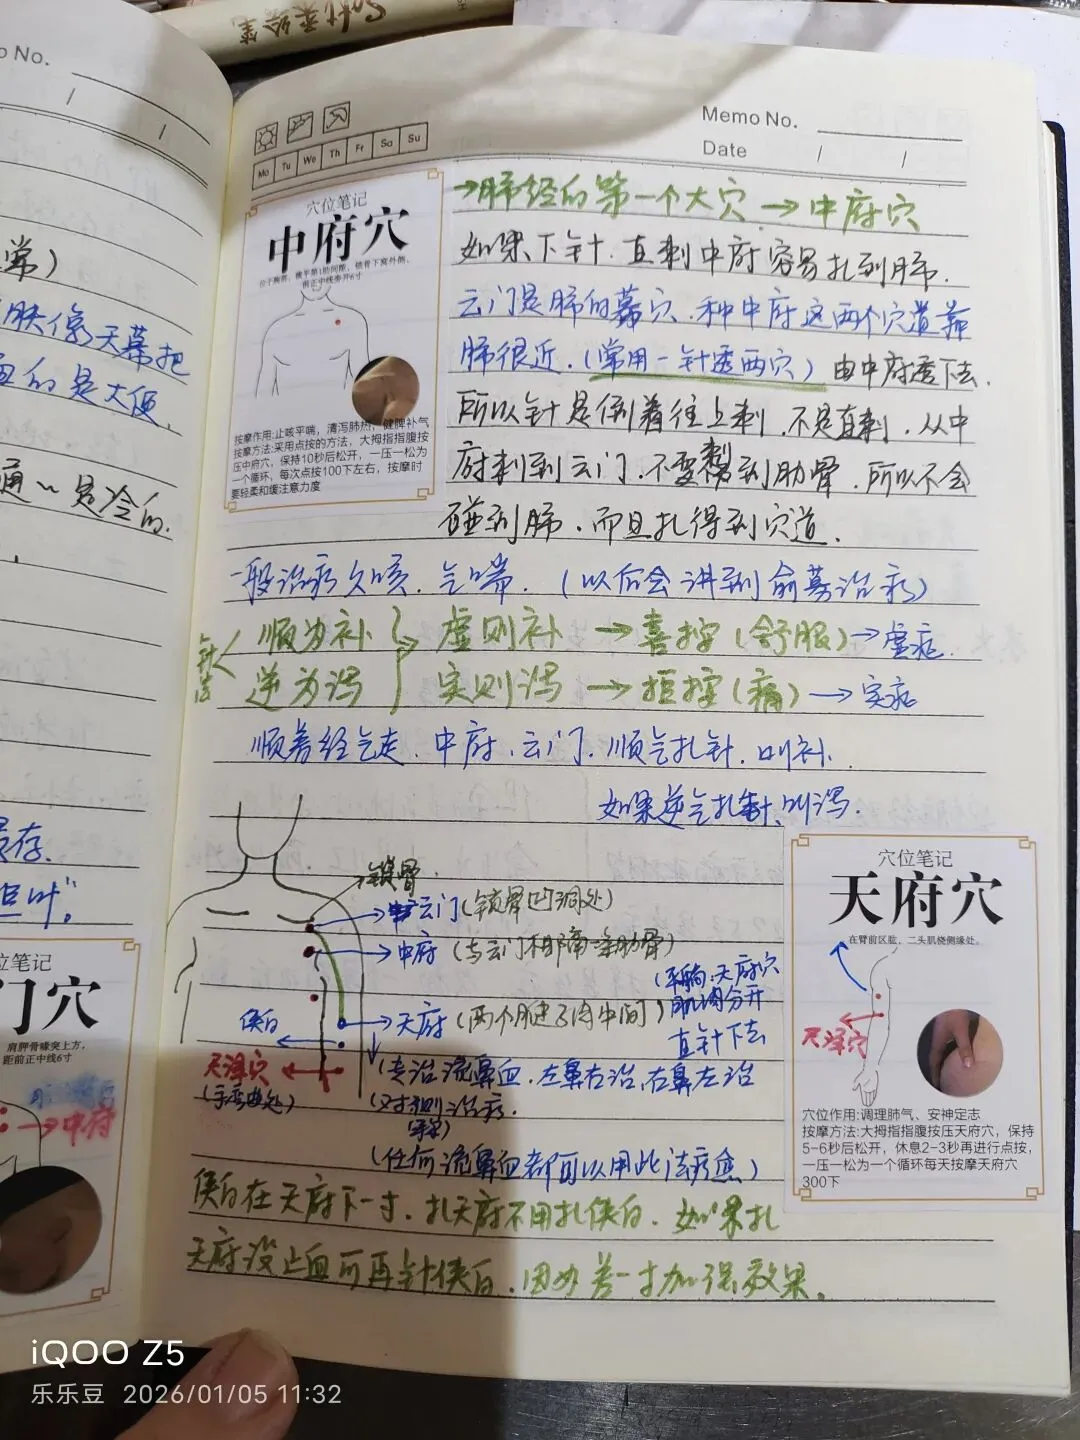 Soft柔绘笔
o No.
/ /
常)
肤像天幕把
的是大便.
通 是冷的.
存.
位笔记
门穴
肩胛骨喙突上方,
距前正中线6寸
→中府
Memo No.
Date / /
Mo Tu We Th Fr Sa Su
穴位笔记
中府穴
位于胸部,横平第1肋间隙,锁骨下窝外侧,
前正中线旁开6寸
按摩作用:止咳平喘,清泻肺热,健脾补气
按摩方法:采用点按的方法,大拇指指腹按
压中府穴,保持10秒后松开,一压一松为
一个循环,每次点按100下左右,按摩时
要轻柔和缓注意力度
→肺经的第一个大穴→中府穴
如果下针.直刺中府容易扎到肺.
云门是肺的幕穴.种中府这两个穴道靠
肺很近.(常用一针透两穴)由中府透下去.
所以针是倒着往上刺.不是直刺.从中
府刺到云门.不要刺到肋骨.所以不会
碰到肺.而且扎得到穴道.
一般治疗久咳.气喘.(以后会讲到俞募治疗)
针法
顺为补 虚则补→喜按(舒服)→虚症.
逆为泻 实则泻→拒按(痛)→实症
顺着经气走.中府.云门.顺气扎针.叫补.
如果逆气扎针.叫泻.
锁骨.
云门(锁骨凹洞处)
中府(与云门相隔一条肋骨)
天府(两个腱子肉中间)
(平躺:天府穴
肌肉分开
直针下去
侠白
天泽穴
(手弯曲处)
(专治流鼻血.左鼻右治,右鼻左治
(对侧治疗.
(任何流鼻血都可以用此法疗愈)
侠白在天府下一寸.扎天府不用扎侠白.如果扎
天府没止血可再针侠白.因为差一寸加强效果.
穴位笔记
天府穴
在臂前区肱,二头肌桡侧缘处。
天泽穴
穴位作用:调理肺气、安神定志
按摩方法:大拇指指腹按压天府穴,保持
5-6秒后松开,休息2-3秒再进行点按,
一压一松为一个循环每天按摩天府穴
300下
iQOO Z5
乐乐豆 2026/01/05 11:32